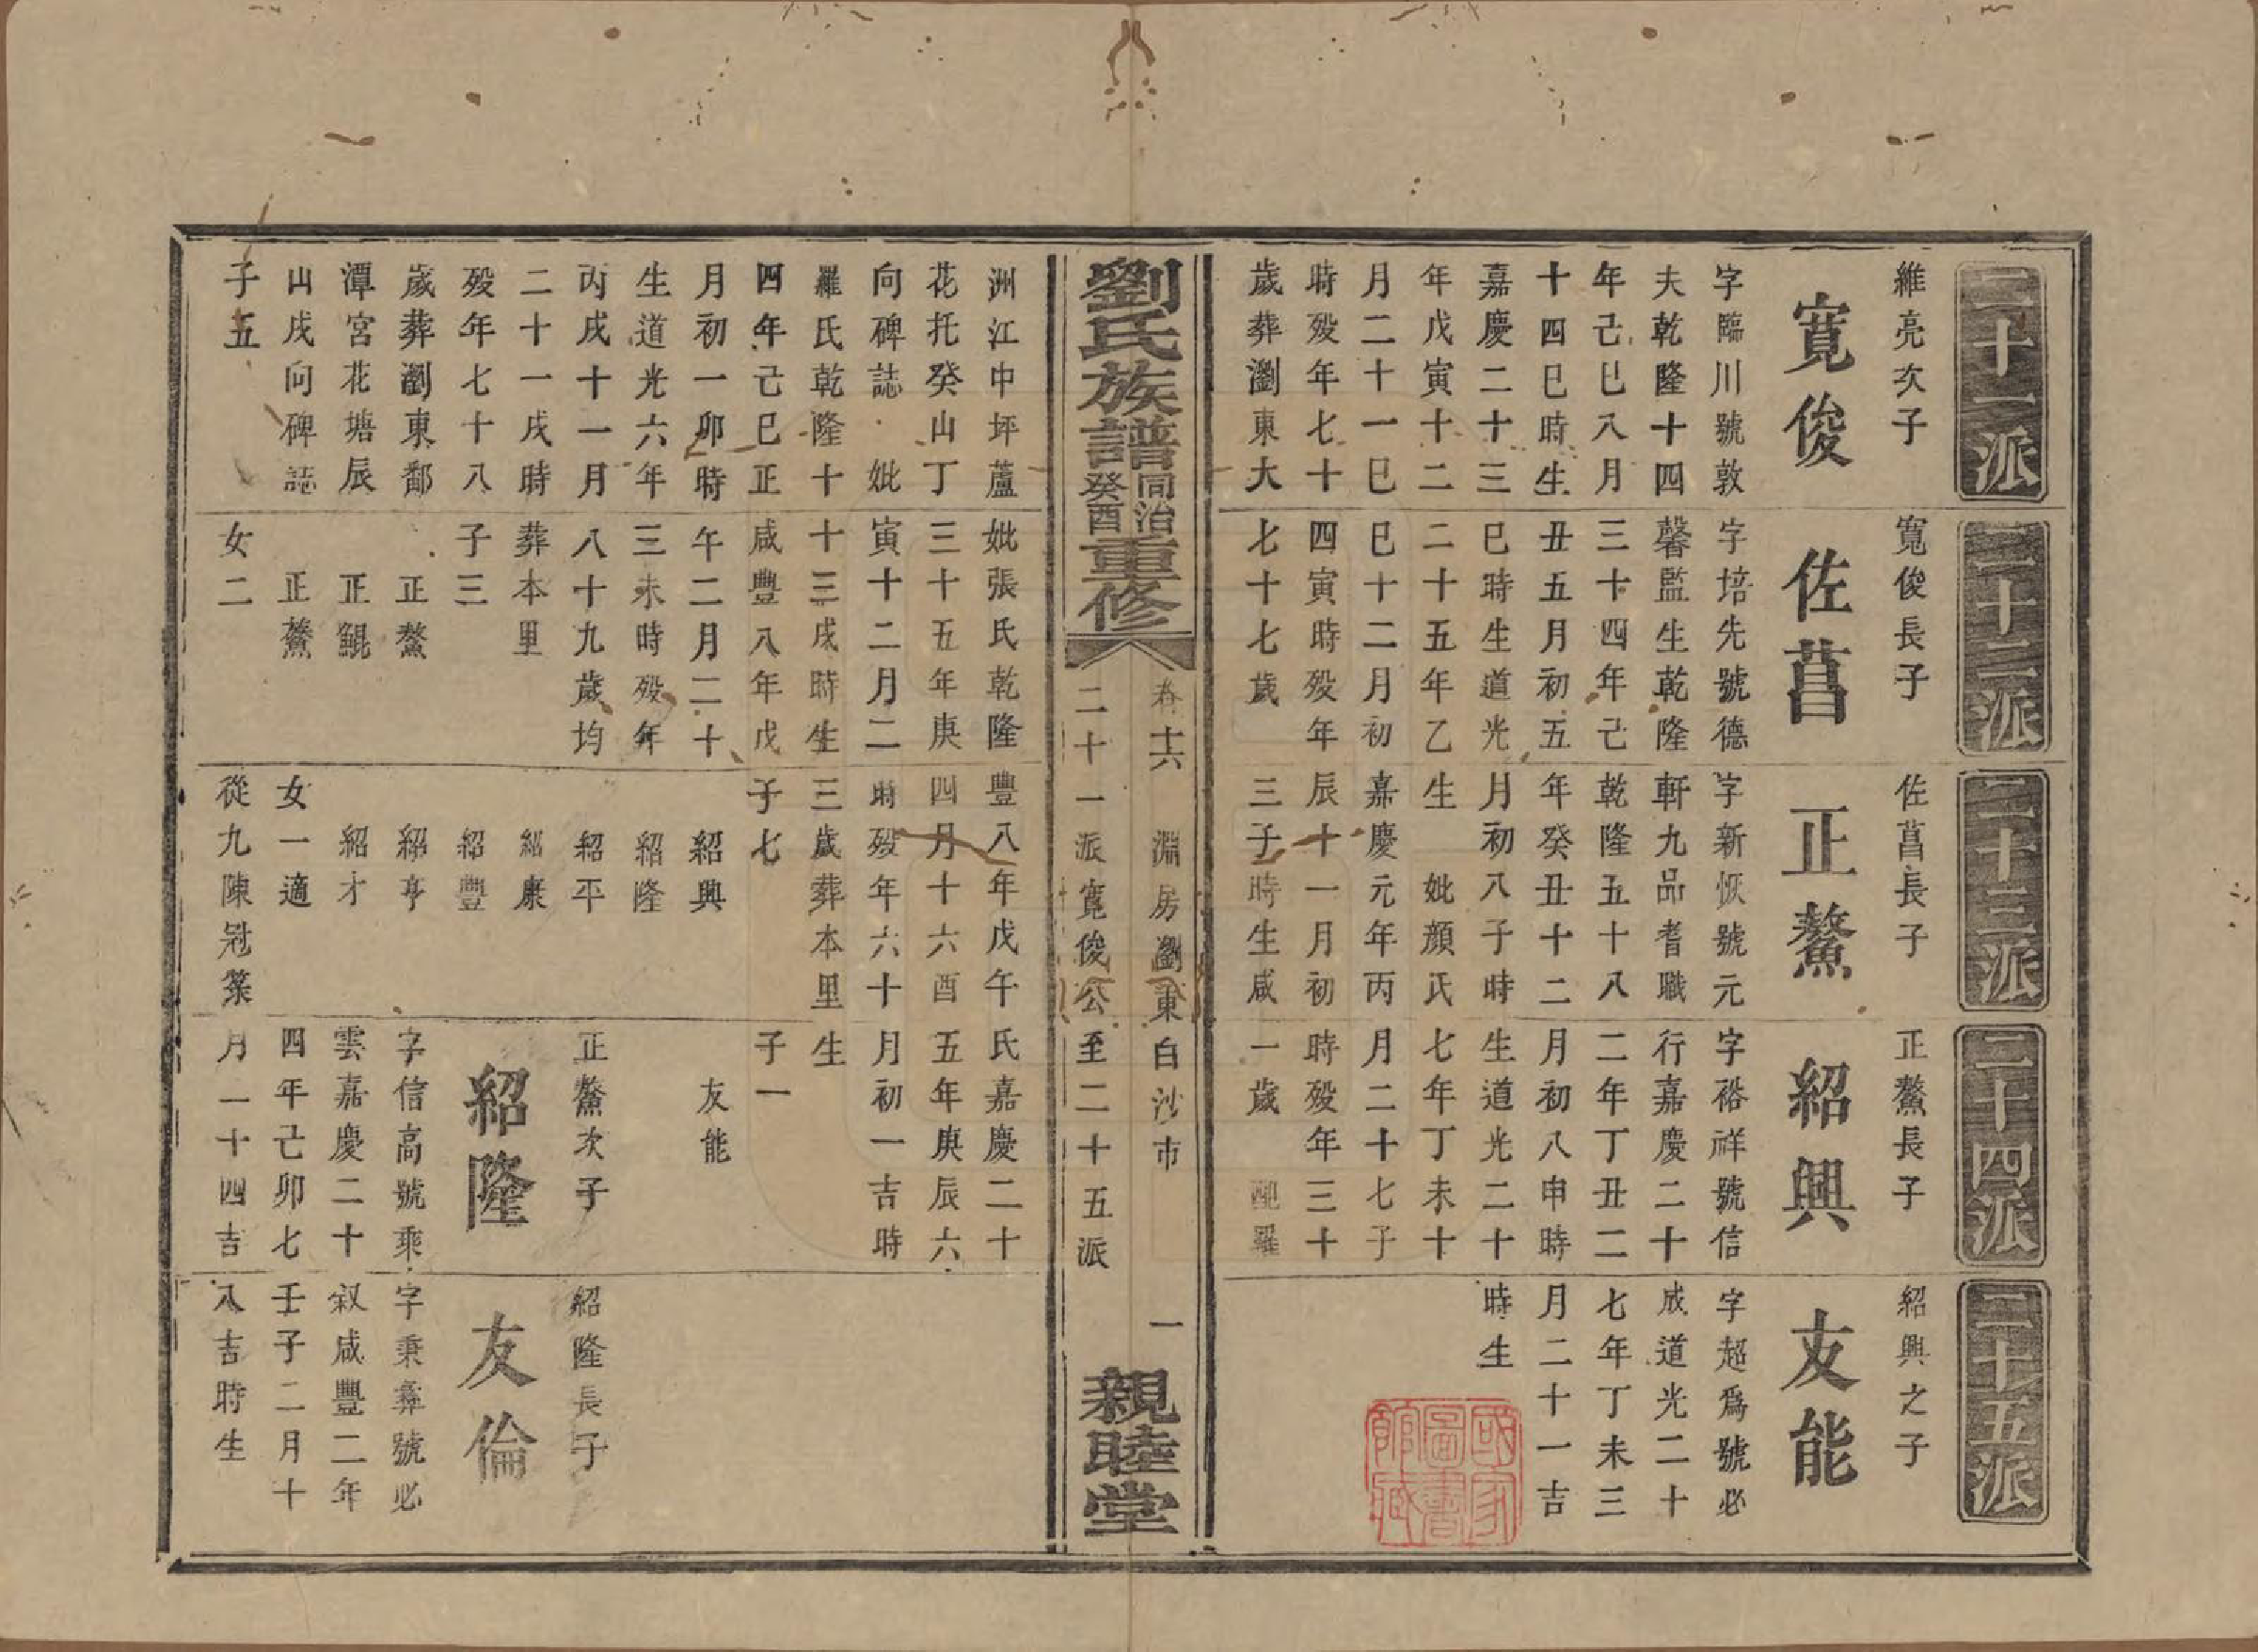 二十一派
維亮次子
寛俊
字臨川號敦
夫乾隆十四
年己巳八月
十四巳時生
嘉慶二十三
年戊寅十二
月二十一巳
時殁年七十
歲葬瀏東大
二十二派
寬俊長子
佐菖
字培先號德
馨監生乾隆
三十四年己
丑五月初五
巳時生道光
二十五年乙
巳十二月初
四寅時殁年
七十七歲
二十三派
佐菖長子
正鰲
字新恢號元
軒九品耆職
乾隆五十八
年癸丑十二
月初八子時
生 妣顔氏
嘉慶元年丙
辰十一月初
三子時生咸
二十四派
正鰲長子
紹興
字裕祥號信
行嘉慶二十
二年丁丑二
月初八申時
生道光二十
七年丁未十
月二十七子
時殁年三十
一歲 配羅
二十五派
紹興之子
友能
字超爲號必
成道光二十
七年丁未三
月二十一吉
時生
國家圖書館藏
劉氏族譜同治癸酉重修
卷十六 淵房瀏東白沙市 一
二十一派寛俊公至二十五派
親睦堂
洲江中坪蘆
花托癸山丁
向碑誌 妣
羅氏乾隆十
四年己巳正
月初一卯時
生道光六年
丙戌十一月
二十一戌時
殁年七十八
歲葬瀏東鄱
潭宮花塘辰
山戌向碑誌
子五
妣張氏乾隆
三十五年庚
寅十二月二
十三戌時生
咸豐八年戊
午二月二十
三未時殁年
八十九歲均
葬本里
子三
正鰲
正鯤
正鰲
女二
豐八年戊午
四月十六酉
時殁年六十
三歲葬本里
子七
紹興
紹隆
紹平
紹康
紹豐
紹亨
紹才
女一適
從九陳冠榮
氏嘉慶二十
五年庚辰六
月初一吉時
生
子一
友能
正鰲次子
紹隆
字信高號乘
雲嘉慶二十
四年己卯七
月一十四吉
紹隆長子
友倫
字秉彝號必
叙咸豐二年
壬子二月十
八吉時生